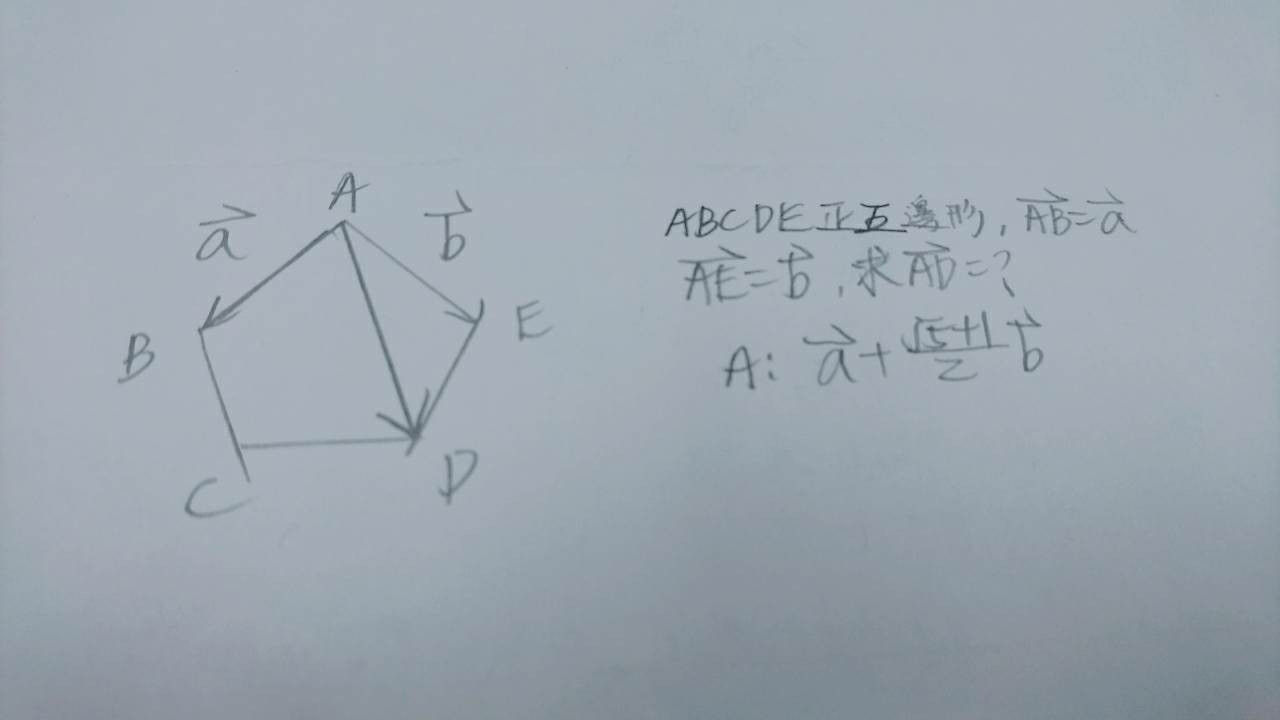 A
a
b
B
E
C
D
ABCDE正五邊形, AB=a
AE=b, 求AD=?
A: a+(√5+1)/2 b